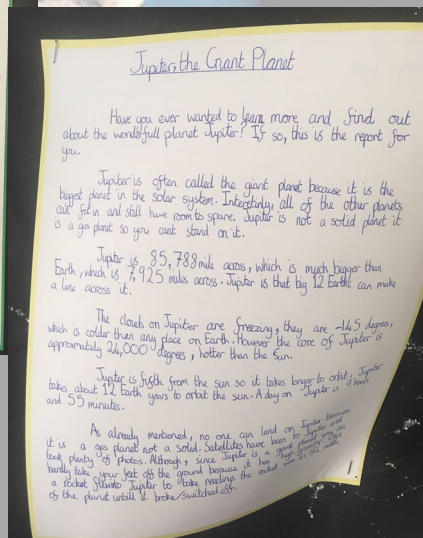 Jupiter, the Giant Planet
Have you ever wanted to learn more and find out
about the wonderfull planet Jupiter? If so, this is the report for
you.
Jupiter is often called the giant planet because it is the
biggest planet in the solar system. Interestinly, all of the other planets
can fit in and still have room to spare. Jupiter is not a solid planet it
is a gas planet so you cant stand on it.
Jupiter is 85,788 mile across, which is much bigger than
Earth, which is 7,925 miles across. Jupiter is that big 12 Earths can make
a line across it.
The clouds on Jupiter are freezing, they are -145 degrees,
which is colder then any place on Earth. However the core of Jupiter is
approximately 24,000 degrees, hotter than the Sun.
Jupiter is fifth from the sun so it takes longer to orbit. Jupiter
takes about 12 Earth years to orbit the sun. A day on Jupiter is 9 hours
and 55 minutes.
As already mentioned, no one can land on Jupiter because
it is a gas planet not a solid. Satellites have been to Jupiter and
took plenty of photos. Although, since Jupiter is a giant planet you can
hardly take your feet off the ground because it has high gravity.
a rocket flew into Jupiter to take readings the rocket was in the middle
of the planet untill it broke/switched off.